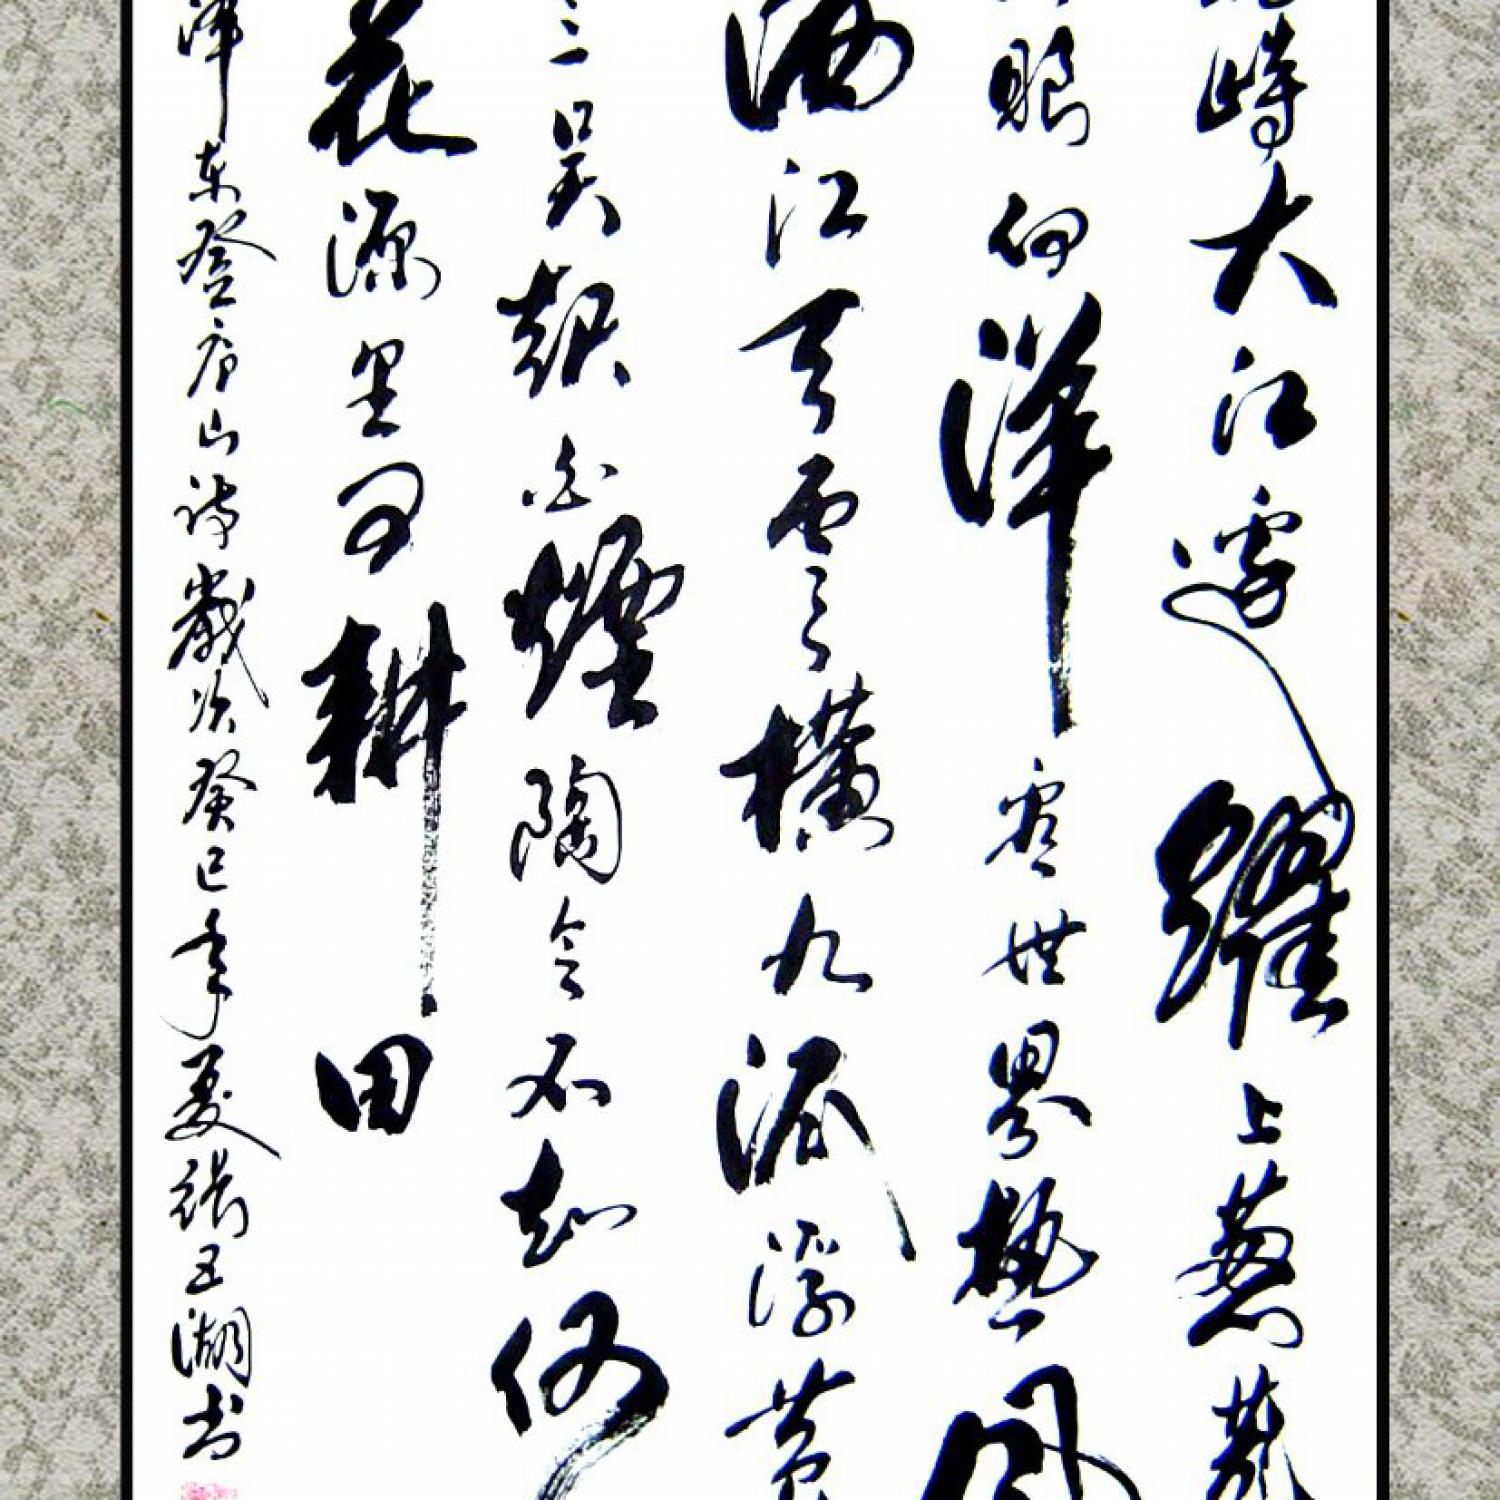 峙大江邊躍上葱蘢
眼向洋看世界熱風
洒江天雲横九派浮黄
三吴起白煙陶令不知何
花源里可耕田
澤东登庐山诗歲次癸巳年夏張湖书